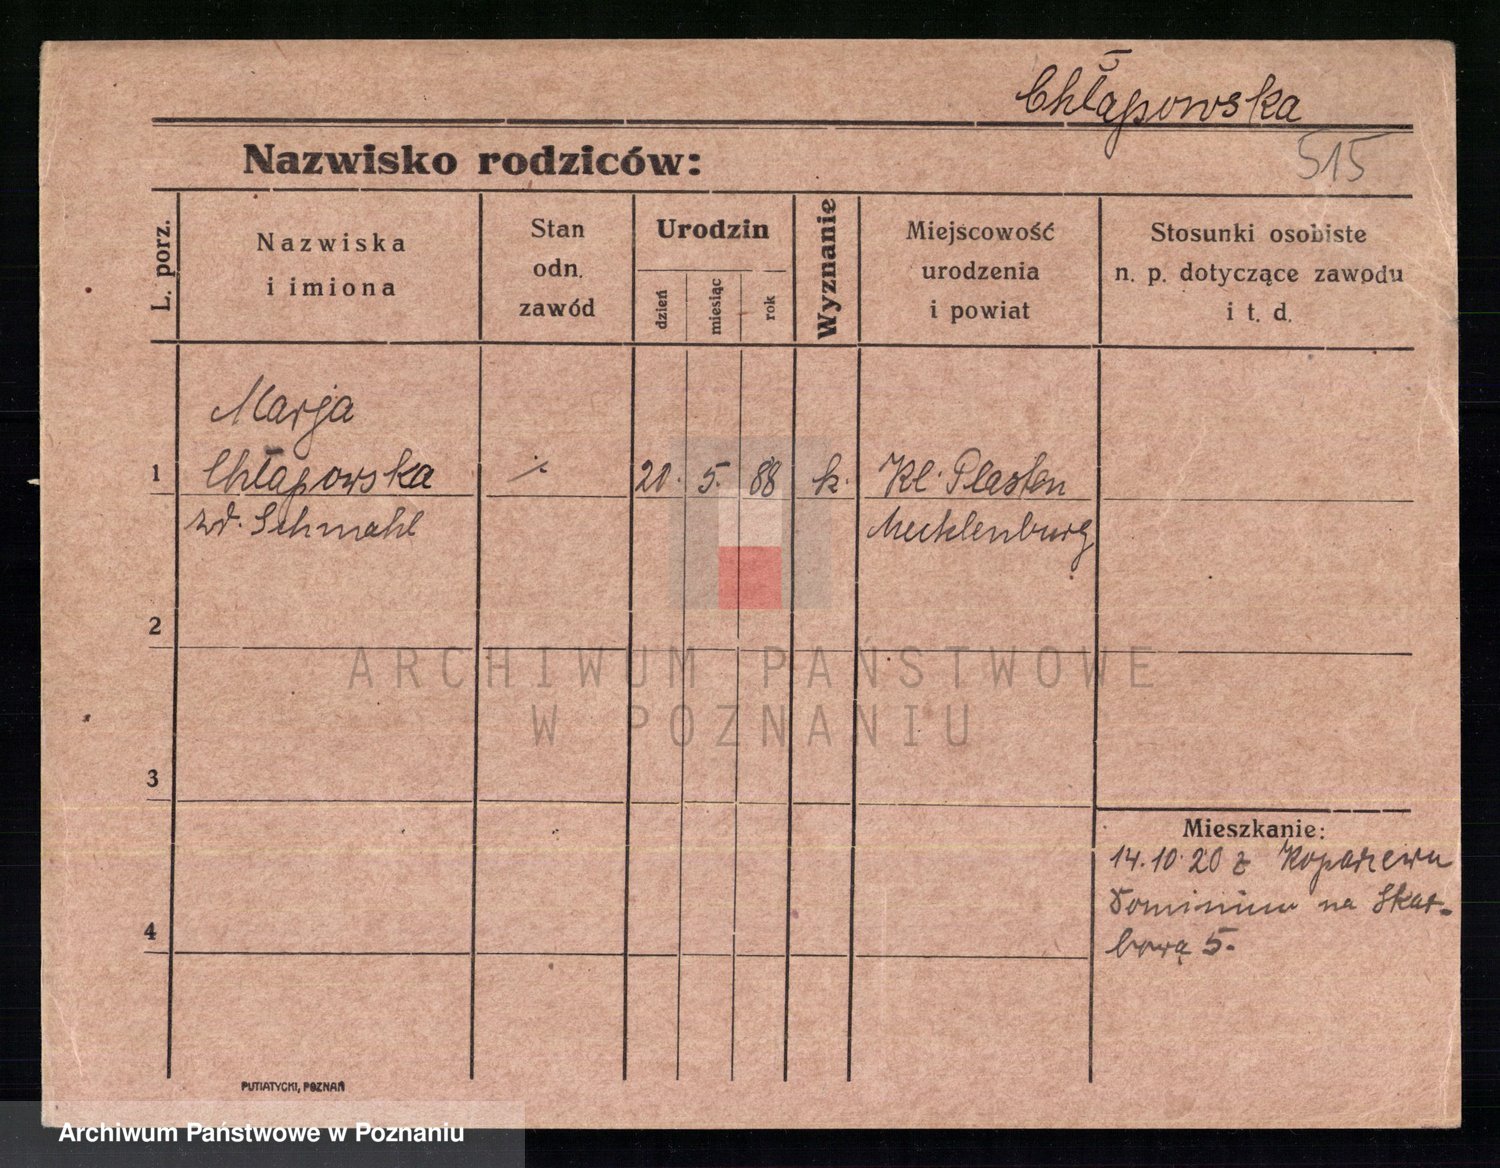 Chłapowska
515
Nazwisko rodziców:
L. porz.
Nazwiska
i imiona
Stan
odn.
zawód
Urodzin
dzień
miesiąc
rok
Wyznanie
Miejscowość
urodzenia
i powiat
Stosunki osobiste
n. p. dotyczące zawodu
i t. d.
Marja
1 Chłapowska 20. 5. 88 k. Kl. Plasten
zd. Schmahl Mecklenburg
2
ARCHIWUM PAŃSTWOWE
W POZNANIU
3
Mieszkanie:
14.10.20 z Kopaszewa
Dominium na Skar-
bową 5.
4
PUTIATYCKI, POZNAŃ
Archiwum Państwowe w Poznaniu